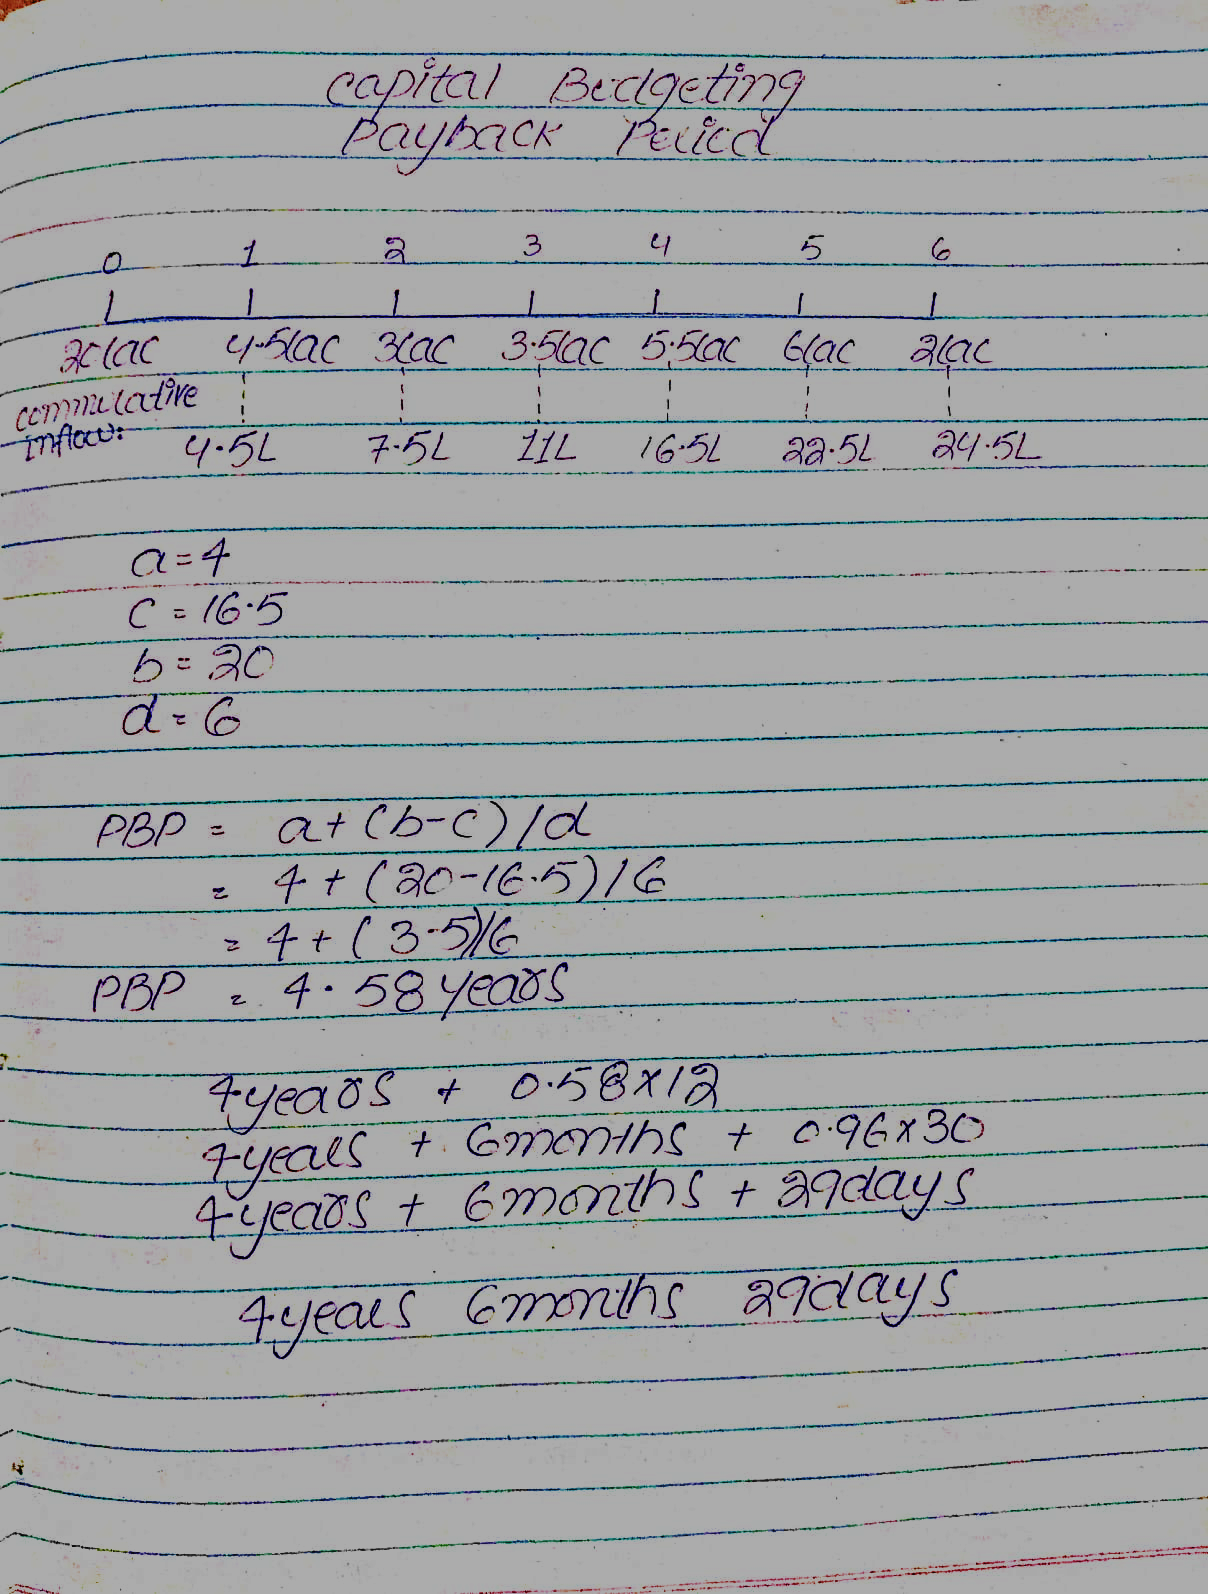 Capital Budgeting
Payback Period
0 1 2 3 4 5 6
20lac 4.5lac 3lac 3.5lac 5.5lac 6lac 2lac
commulative
inflow: 4.5L 7.5L 11L 16.5L 22.5L 24.5L
a=4
c = 16.5
b = 20
d = 6
PBP = a+(b-c)/d
= 4 + (20-16.5)/6
= 4 + (3.5)/6
PBP = 4.58 years
4years + 0.58x12
4years + 6months + 0.96x30
4years + 6months + 29days
4years 6months 29days